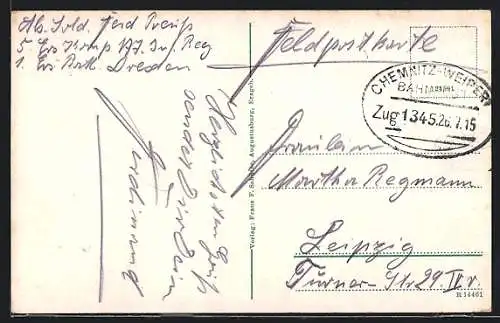 Abs. Sold. Ferd
5. Ers Komp 177. Inf. Reg
1. Ers Batl. Dresden
Feldpostkarte
CHEMNITZ-WEIPERT
BAHNPOST
Zug 1345.26.7.15
Fräulein
Martha Regmann
Leipzig
Turner-Str 29. IV r.
Herzlichsten Gruß
sendet Dir Dein
Ferdinand
Verlag: Franz F.
Augustusburg, Erzgeb.
R 14461